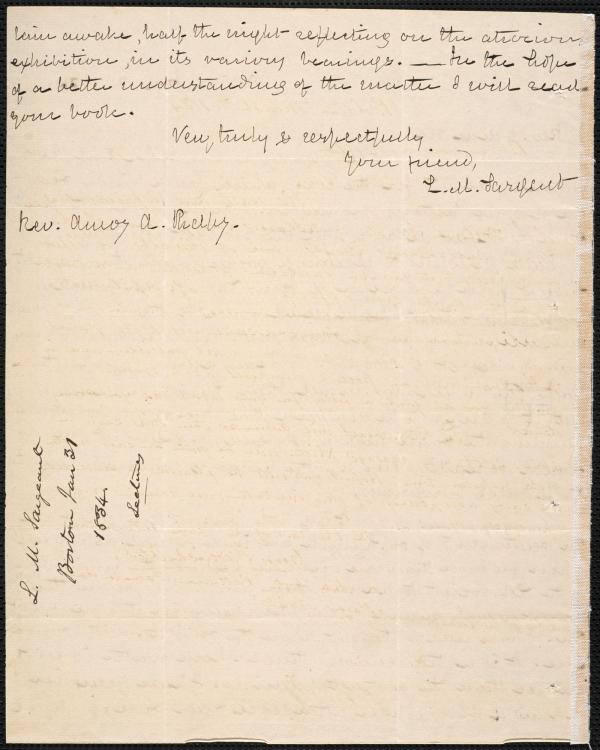 lain awake, half the night reflecting on the atrocious
exhibition, in its various bearings. — In the hope
of a better understanding of the matter I will read
your book.
Very truly & respectfully
your friend,
L. M. Sargent
Rev. Amos A. Phelps.
L. M. Sargeant
Boston Jan 31
1834.